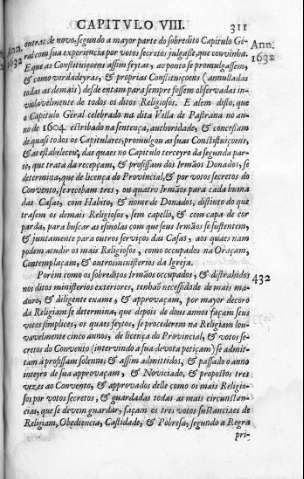 CAPITVLO VIII. 311
outras de novo, segundo a mayor parte do sobredito Capitulo Ge-
ral com sua experiencia por votos secretos julgasse, que convinha.
E que as Constituiçoens assim feytas, ao ponto se promulgassem,
& como verdadeyras, & proprias Constituiçoens (annulladas
todas as demais) desde entam para sempre fossem observadas in-
violavelmente de todos os ditos Religiosos. E alem disso, que
o Capitulo Géral celebrado na dita Villa de Pastrana no an-
no de 1604. estribado na sentença, authoridade, & concessam
de quasi todos os Capitulares, promulgou as suas Constituiçoens,
& as estabeleceu, das quaes no Capitulo terceyro da segunda par-
te, que trata da recepçam, & profissam dos Irmãos Donados, se
determina, que de licença do Provincial, & por votos secretos do
Convento, se recebam tres, ou quatro Irmãos para cada huma
das Casas, com Habito, & nome de Donados, distinto do que
trasem os demais Religiosos, sem capello, & com capa de cor
parda, para buscar as esmolas com que seus Irmãos se sustentem,
& juntamente para outros serviços das Casas, aos quaes nam
podem acudir os mais Religiosos, como occupados na Oraçam,
Contemplaçam, & outros ministerios da Igreja.
Porèm como os sobreditos Irmãos occupados, & distrahidos
nos ditos ministerios exteriores, tenhaõ necessidade de mais ma-
duro, & diligente exame, & approvaçam, por mayor decoro
da Religiam se determina, que depois de dous annos façam seus
votos simplices; os quaes feytos, se procederem na Religiam lou-
vavelmente cinco annos, de licença do Provincial, & votos se-
cretos do Convento (intervindo a sua devota petiçam) se admit-
tam à profissam solenne; & assim admittidos, & passado o anno
inteyro de sua approvaçam, & Noviciado, & propostos tres
vezes ao Convento, & approvados delle como os mais Religio-
sos por votos secretos, & guardadas todas as mais circunstan-
cias, que se devem guardar, façam os tres votos sustanciaes de
Religiam, Obediencia, Castidade, & Pobresa, segundo a Regra
pri-
Ann.
1632
432
Ann.
1632